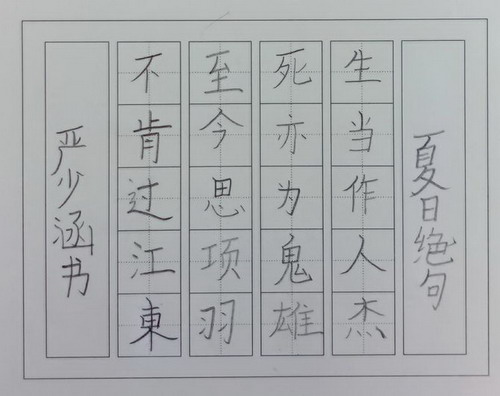 夏日绝句
生当作人杰
死亦为鬼雄
至今思项羽
不肯过江東
严少涵书